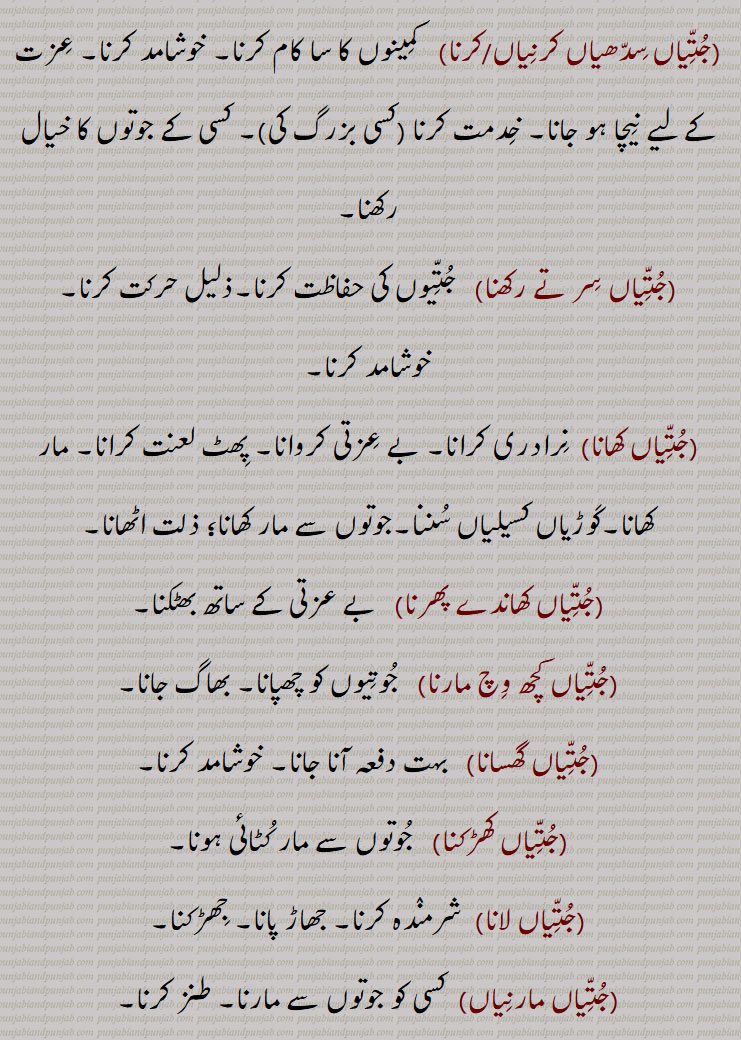 (جُتِّیاں سِدّھیاں کرنِیاں/کرنا) کمِینوں کا سا کام کرنا۔ خوشامد کرنا۔ عِزت
کے لیے نِیچا ہو جانا۔ خِدمت کرنا (کسی بزرگ کی)۔ کسی کے جوتوں کا خیال
رکھنا۔
(جُتِّیاں سِر تے رکھنا) جُتِّیوں کی حفاظت کرنا۔ذلیل حرکت کرنا۔
خوشامد کرنا۔
(جُتِّیاں کھانا) نِرادری کرانا۔ بے عِزتی کروانا۔ پِھٹ لعنت کرانا۔ مار
کھانا۔کَوڑیاں کسیلیاں سُننا۔جوتوں سے مار کھانا؛ ذلت اٹھانا۔
(جُتِّیاں کھاندے پھرنا) بے عزتی کے ساتھ بھٹکنا۔
(جُتِّیاں کچھ وِچ مارنا) جُوتِیوں کو چھپانا۔ بھاگ جانا۔
(جُتِّیاں گھسانا) بہت دفعہ آنا جانا۔ خوشامد کرنا۔
(جُتِّیاں کھڑکنا) جُوتوں سے مار کُٹائی ہونا۔
(جُتِّیاں لانا) شرمنْدہ کرنا۔ جھاڑ پانا۔ جِھڑکنا۔
(جُتِّیاں مارنِیاں) کسی کو جوتوں سے مارنا۔ طنز کرنا۔